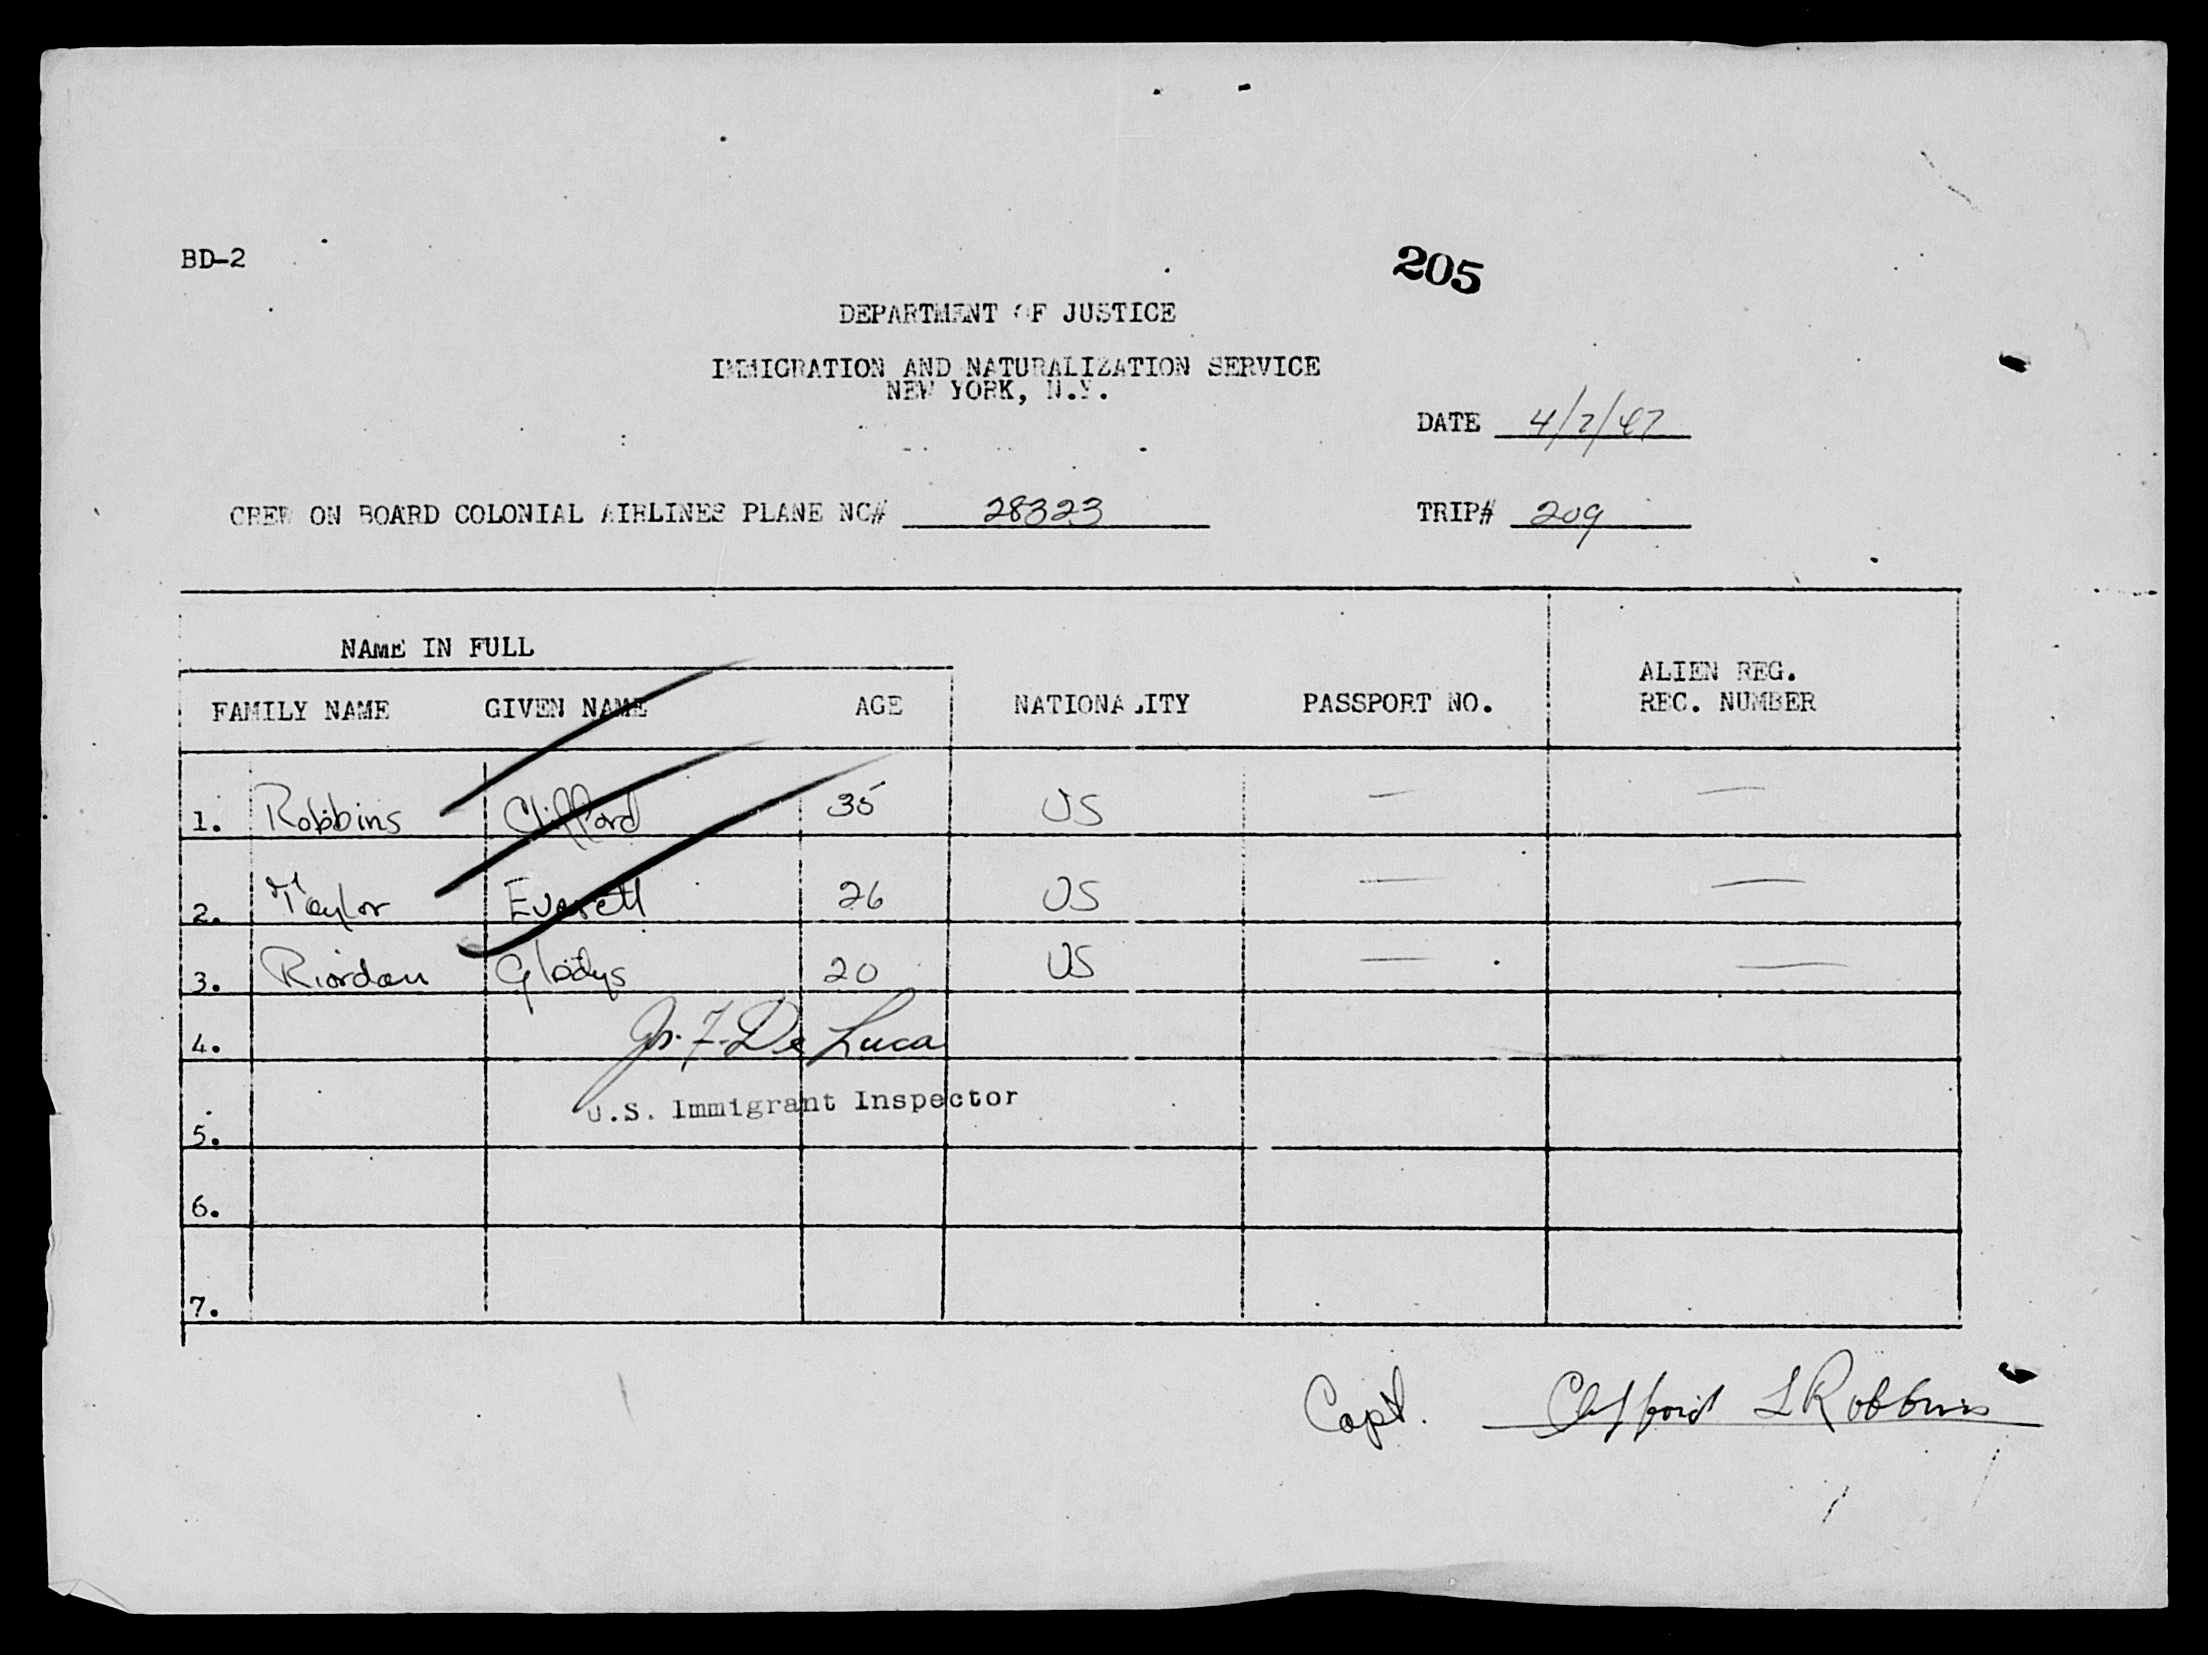 BD-2
205
DEPARTMENT OF JUSTICE
IMMIGRATION AND NATURALIZATION SERVICE
NEW YORK, N.Y.
DATE 4/2/47
CREW ON BOARD COLONIAL AIRLINES PLANE NC# 28323 TRIP# 209
NAME IN FULL
FAMILY NAME GIVEN NAME AGE NATIONALITY PASSPORT NO. ALIEN REG. REC. NUMBER
1. Robbins Clifford 35 US — —
2. Taylor Everett 26 US — —
3. Riordan Gladys 20 US — —
4. De Luca
U.S. Immigrant Inspector
5.
6.
7.
Capt. Clifford L Robbins